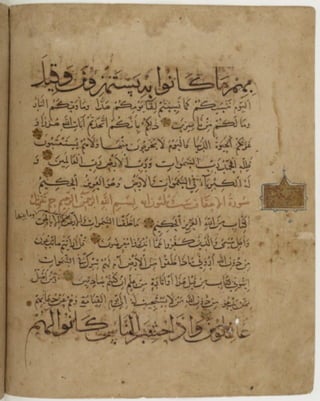 بهم ما كانوا به يستهزؤن وقيل
اليوم ننسيكم كما نسيتم لقاء يومكم هذا ومأويكم النار
وما لكم من ناصرين ذلكم بأنكم اتخذتم آيات الله هزوا و
غرتكم الحيوة الدنيا فاليوم لا يخرجون منها ولا هم يستعتبون
فلله الحمد رب السموات ورب الأرض رب العالمين و
له الكبرياء في السموات والأرض وهو العزيز الحكيم
سورة الأحقاف بسم الله الرحمن الرحيم حم تنزيل
الكتاب من الله العزيز الحكيم ما خلقنا السموات والأرض وما بينهما إلا بالحق
وأجل مسمى والذين كفروا عما أنذروا معرضون قل أرأيتم ما تدعون
من دون الله أروني ماذا خلقوا من الأرض أم لهم شرك في السموات
ايتوني بكتاب من قبل هذا أو أثارة من علم إن كنتم صادقين ومن أضل
ممن يدعو من دون الله من لا يستجيب له إلى يوم القيامة وهم عن دعائهم
غافلون وإذا حشر الناس كانوا لهم